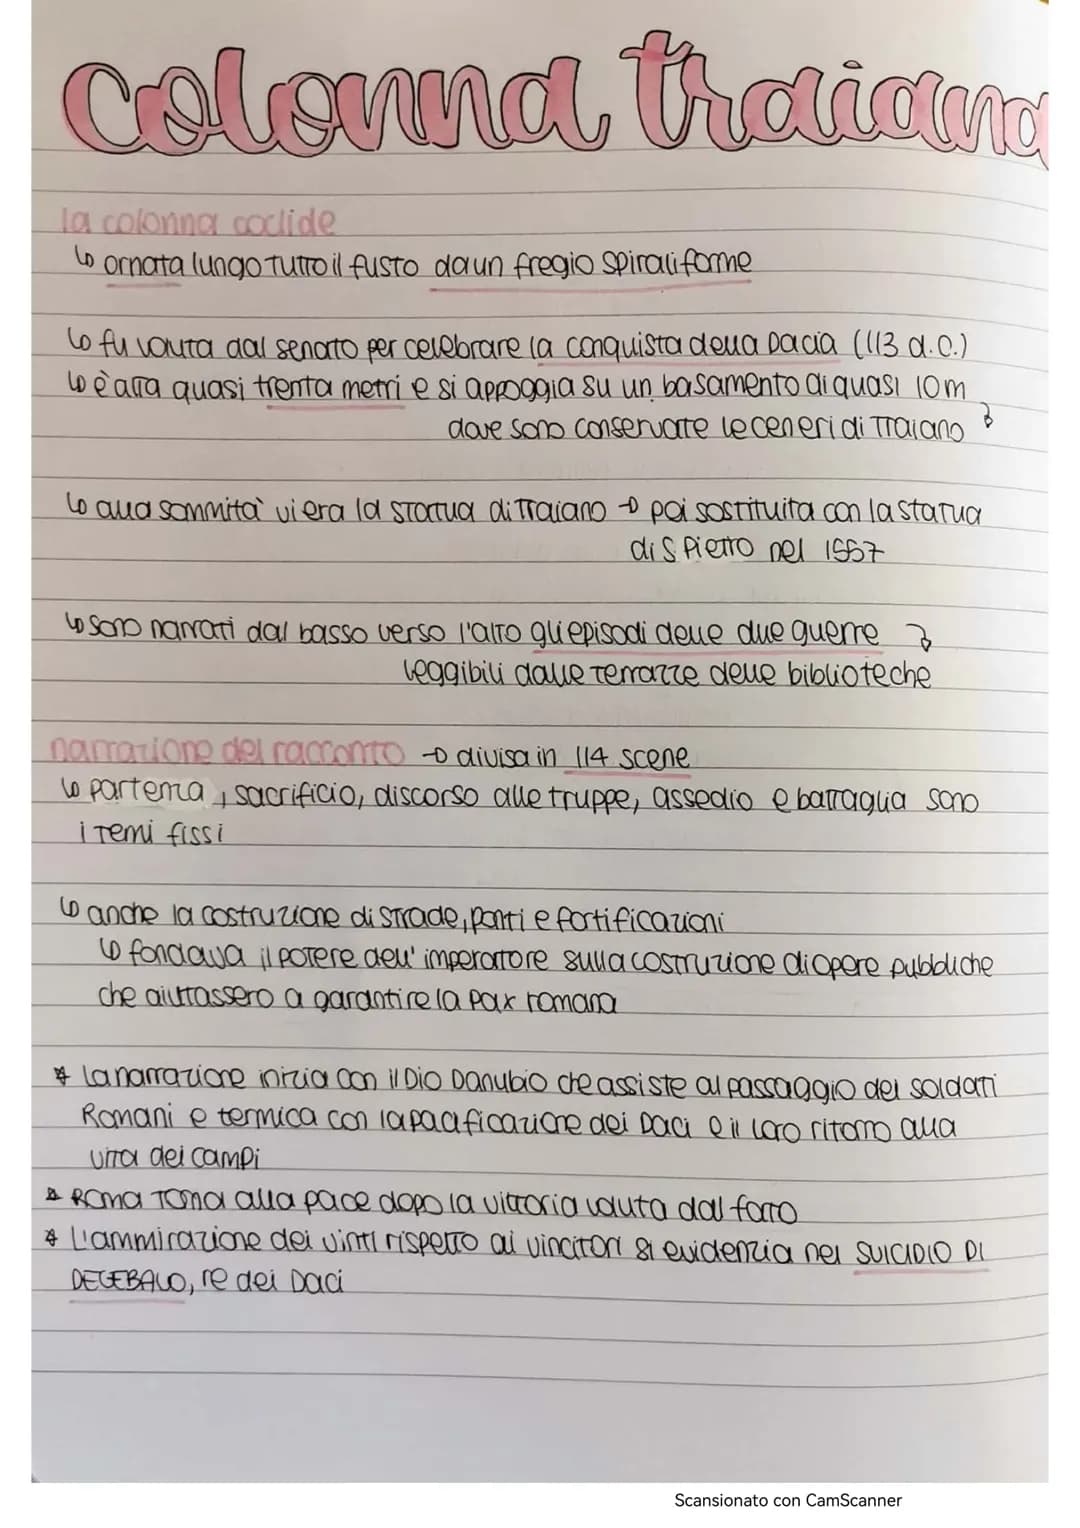 colonna traiana
la colonna coclide
↳ ornata lungo tutto il fusto da un fregio spiraliforme
↳ fu voluta dal senato per celebrare la conquista della Dacia (113 d.C.)
↳ è alta quasi trenta metri e si appoggia su un basamento di quasi 10m
dove sono conservate le ceneri di Traiano
↳ alla sommità vi era la statua di Traiano → poi sostituita con la statua
di S Pietro nel 1557
↳ sono narrati dal basso verso l'alto gli episodi delle due guerre
leggibili dalle terrazze delle biblioteche
narrazione del racconto → divisa in 114 scene
↳ partenza, sacrificio, discorso alle truppe, assedio e battaglia sono
i temi fissi
↳ anche la costruzione di strade, ponti e fortificazioni
↳ fondava il potere dell' imperatore sulla costruzione di opere pubbliche
che aiutassero a garantire la pax romana
* La narrazione inizia con il Dio Danubio che assiste al passaggio dei soldati
Romani e termica con la pacificazione dei Daci e il loro ritorno alla
vita dei campi
* Roma torna alla pace dopo la vittoria voluta dal fato
* L'ammirazione dei vinti rispetto ai vincitori si evidenzia nel SUICIDIO DI
DECEBALO, re dei Daci
Scansionato con CamScanner